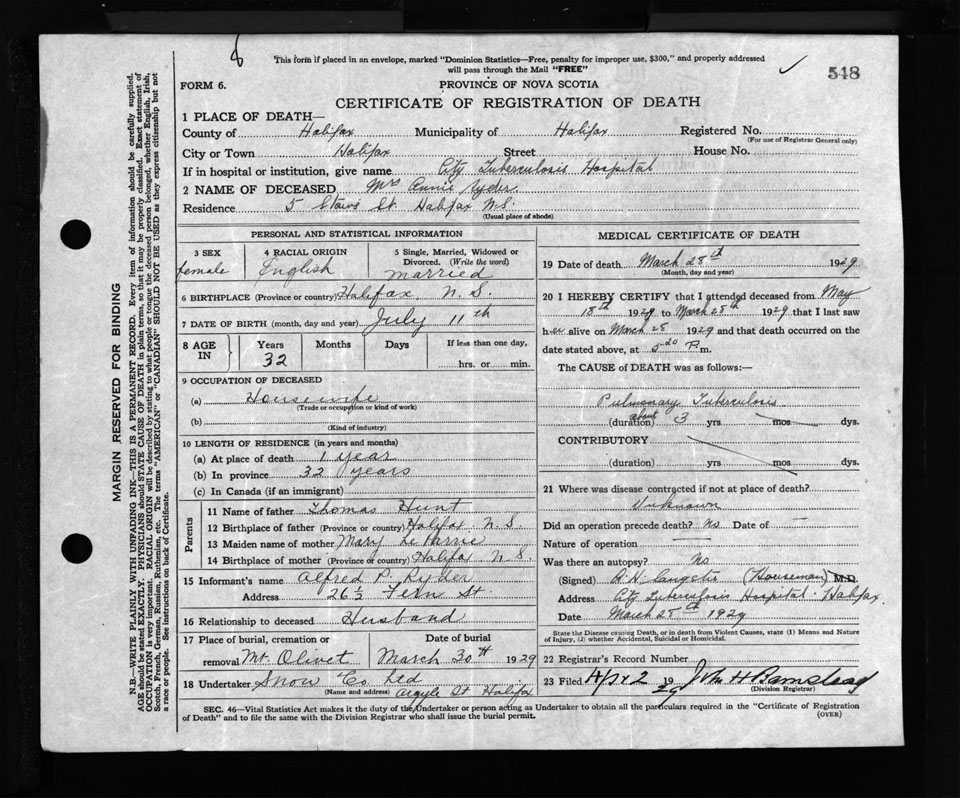 8
This form if placed in an envelope, marked "Dominion Statistics—Free, penalty for improper use, $300," and properly addressed
will pass through the Mail "FREE"
548
FORM 6.
PROVINCE OF NOVA SCOTIA
CERTIFICATE OF REGISTRATION OF DEATH
1 PLACE OF DEATH—
County of Halifax Municipality of Halifax Registered No.
(For use of Registrar General only)
City or Town Halifax Street House No.
If in hospital or institution, give name City Tuberculosis Hospital
2 NAME OF DECEASED Mrs Annie Ryder
Residence 5 St. Halifax N.S.
(Usual place of abode)
PERSONAL AND STATISTICAL INFORMATION
3 SEX
female
4 RACIAL ORIGIN
English
5 Single, Married, Widowed or
Divorced. (Write the word)
married
6 BIRTHPLACE (Province or country) Halifax, N.S.
7 DATE OF BIRTH (month, day and year) July 11th
8 AGE IN
Years Months Days If less than one day,
32 hrs. or min.
9 OCCUPATION OF DECEASED
(a) Housewife
(Trade or occupation or kind of work)
(b)
(Kind of industry)
10 LENGTH OF RESIDENCE (in years and months)
(a) At place of death 1 year
(b) In province 32 years
(c) In Canada (if an immigrant)
Parents
11 Name of father Thomas Hunt
12 Birthplace of father (Province or country) Halifax N.S.
13 Maiden name of mother Mary
14 Birthplace of mother (Province or country) Halifax N.S.
15 Informant's name Alfred P. Ryder
Address 26½ Fern St
16 Relationship to deceased Husband
17 Place of burial, cremation or
removal Mt. Olivet
Date of burial
March 30th 1929
18 Undertaker Snow Co Ltd
(Name and address) Argyle St Halifax
MEDICAL CERTIFICATE OF DEATH
19 Date of death March 28th 1929
(Month, day and year)
20 I HEREBY CERTIFY that I attended deceased from May
18th 1929 to March 28th 1929 that I last saw
her alive on March 28 1929 and that death occurred on the
date stated above, at 5-20 P.m.
The CAUSE of DEATH was as follows:—
Pulmonary Tuberculosis
(duration) about 3 yrs mos dys.
CONTRIBUTORY
(duration) yrs mos dys.
21 Where was disease contracted if not at place of death?
Unknown
Did an operation precede death? No Date of —
Nature of operation —
Was there an autopsy? No
(Signed) (Houseman) M.D.
Address City Tuberculosis Hospital Halifax.
Date March 28th 1929
State the Disease causing Death, or in death from Violent Causes, state (1) Means and Nature
of Injury, (2) whether Accidental, Suicidal or Homicidal.
22 Registrar's Record Number
23 Filed Apr 2 1929 John H
(Division Registrar)
SEC. 46—Vital Statistics Act makes it the duty of the Undertaker or person acting as Undertaker to obtain all the particulars required in the "Certificate of Registration
of Death" and to file the same with the Division Registrar who shall issue the burial permit.
(OVER)
MARGIN RESERVED FOR BINDING
N.B.—WRITE PLAINLY WITH UNFADING INK—THIS IS A PERMANENT RECORD. Every item of information should be carefully supplied.
AGE should be stated EXACTLY. PHYSICIANS should STATE CAUSE OF DEATH in plain terms, so that it may be properly classified. Exact statement of
OCCUPATION is very important. RACIAL ORIGIN will be described by stating to what people or tongue the deceased person belonged, whether English, Irish,
Scotch, French, German, Russian, Ruthenian, etc. The terms "AMERICAN" or "CANADIAN" SHOULD NOT BE USED as they express citizenship but not
a race or people. See instructions on back of Certificate.